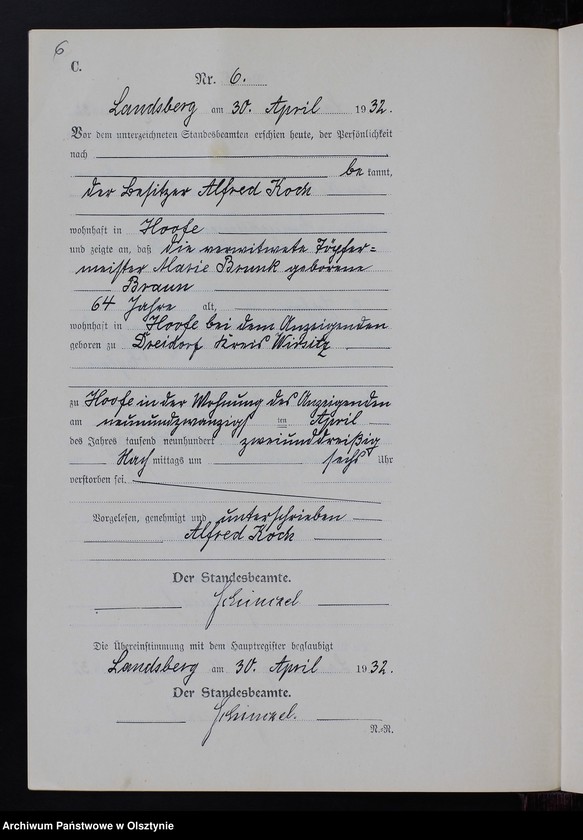 6
C.
Nr. 6.
Landsberg am 30. April 1932.
Vor dem unterzeichneten Standesbeamten erschien heute, der Persönlichkeit
nach
be kannt,
der Besitzer Alfred Koch
wohnhaft in Hoofe
und zeigte an, daß die verwitwete Töpfer=
meister Marie Brunk geborene
Braun
64 Jahre alt,
wohnhaft in Hoofe bei dem Anzeigenden
geboren zu Dreidorf Kreis Wirsitz
zu Hoofe in der Wohnung des Anzeigenden
am neunundzwanzigs ten April
des Jahres tausend neunhundert zweiunddreißig
Nach mittags um sechs Uhr
verstorben sei.
Vorgelesen, genehmigt und unterschrieben
Alfred Koch
Der Standesbeamte.
Die Übereinstimmung mit dem Hauptregister beglaubigt
Landsberg am 30. April 1932.
Der Standesbeamte.
N.=R.
Archiwum Państwowe w Olsztynie